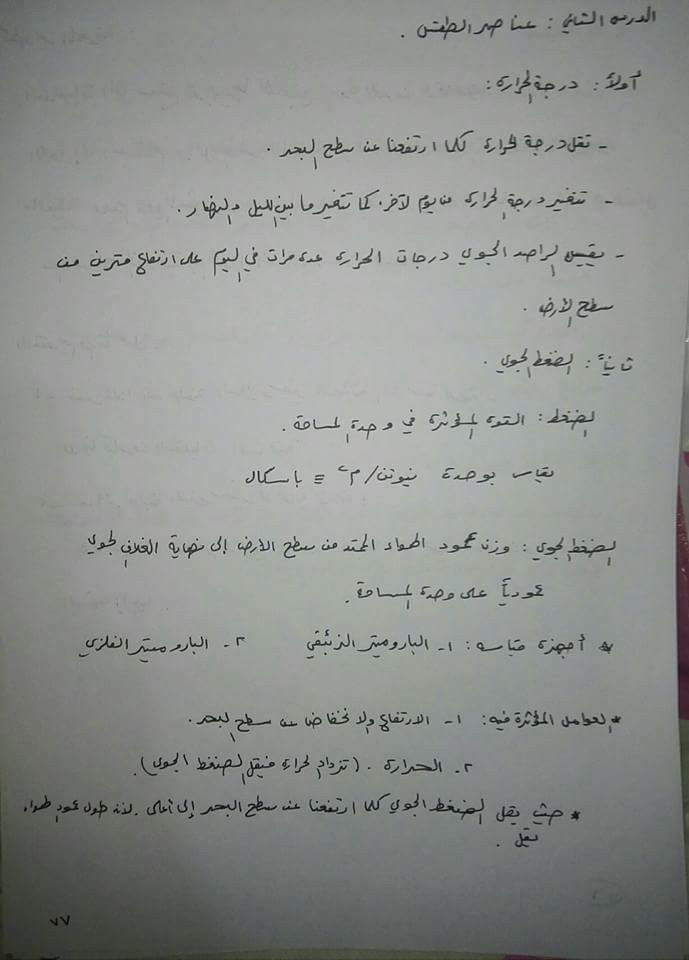 الدرس الثاني : عناصر الطقس .
أولاً : درجة الحرارة :
- تقل درجة الحرارة كلما ارتفعنا عن سطح البحر .
- تتغير درجة الحرارة من يوم لآخر . كما تتغير ما بين الليل والنهار .
- يقيس الراصد الجوي درجات الحرارة عدة مرات في اليوم على ارتفاع مترين من
سطح الأرض .
ثانياً : الضغط الجوي .
الضغط : القوة المؤثرة في وحدة المساحة .
يقاس بوحدة نيوتن/م٢ ≡ باسكال
الضغط الجوي : وزن عمود الهواء الممتد من سطح الأرض إلى نهاية الغلاف الجوي
عمودياً على وحدة المساحة .
* أجهزة قياسه : ١- البارومتر الزئبقي ٢- البارومتر الفلزي
* العوامل المؤثرة فيه : ١- الارتفاع والانخفاض عن سطح البحر .
٢- الحرارة . (تزداد الحرارة فيقل الضغط الجوي) .
* حيث يقل الضغط الجوي كلما ارتفعنا عن سطح البحر إلى أعلى . لأن طول عمود الهواء
يقل .
٧٧